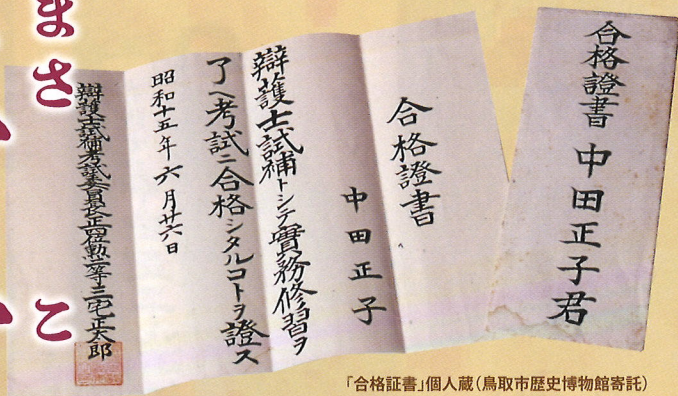 合格證書 中田正子君
合格證書
中田正子
辯護士試補トシテ實務修習ヲ
了ヘ考試ニ合格シタルコトヲ證ス
昭和十五年六月廿六日
辯護士試補考試委員長正四位勲二等三宅正太郎
まさ
こ
「合格証書」個人蔵(鳥取市歴史博物館寄託)